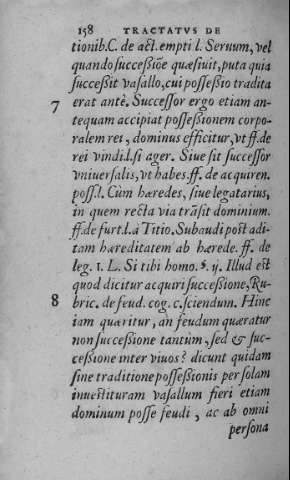 158 TRACTATVS DE
tionib. C. de act. empti l. Seruum, vel
quando successiõe quæsiuit, puta quia
successit vasallo, cui possessio tradita
7 erat antè. Successor ergo etiam an-
tequam accipiat possessionem corpo-
ralem rei, dominus efficitur, vt ff. de
rei vindi. l. si ager. Siue sit successor
vniuersalis, vt habes ff. de acquiren.
poss. l. Cùm hæredes, siue legatarius,
in quem recta via trãsit dominium.
ff. de furt. l. à Titio. Subaudi post adi-
tam hæreditatem ab hærede. ff. de
leg. 1. L. Si tibi homo. §. ij. Illud est
quod dicitur acquiri successione, Ru-
8 bric. de feud. cog. c. sciendum. Hinc
iam quæritur, an feudum quæratur
non successione tantùm, sed & suc-
cessione inter viuos? dicunt quidam
sine traditione possessionis per solam
inuestituram vasallum fieri etiam
dominum posse feudi, ac ab omni
persona